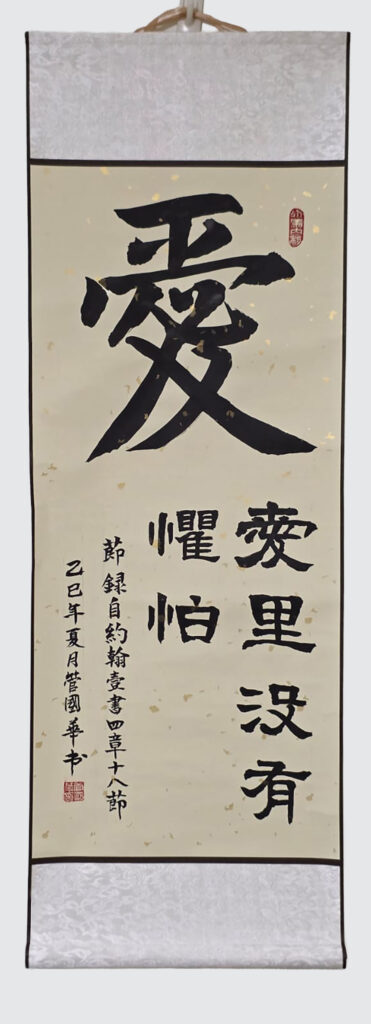 愛
愛里没有
懼怕
節録自約翰壹書四章十八節
乙巳年夏月管國華书